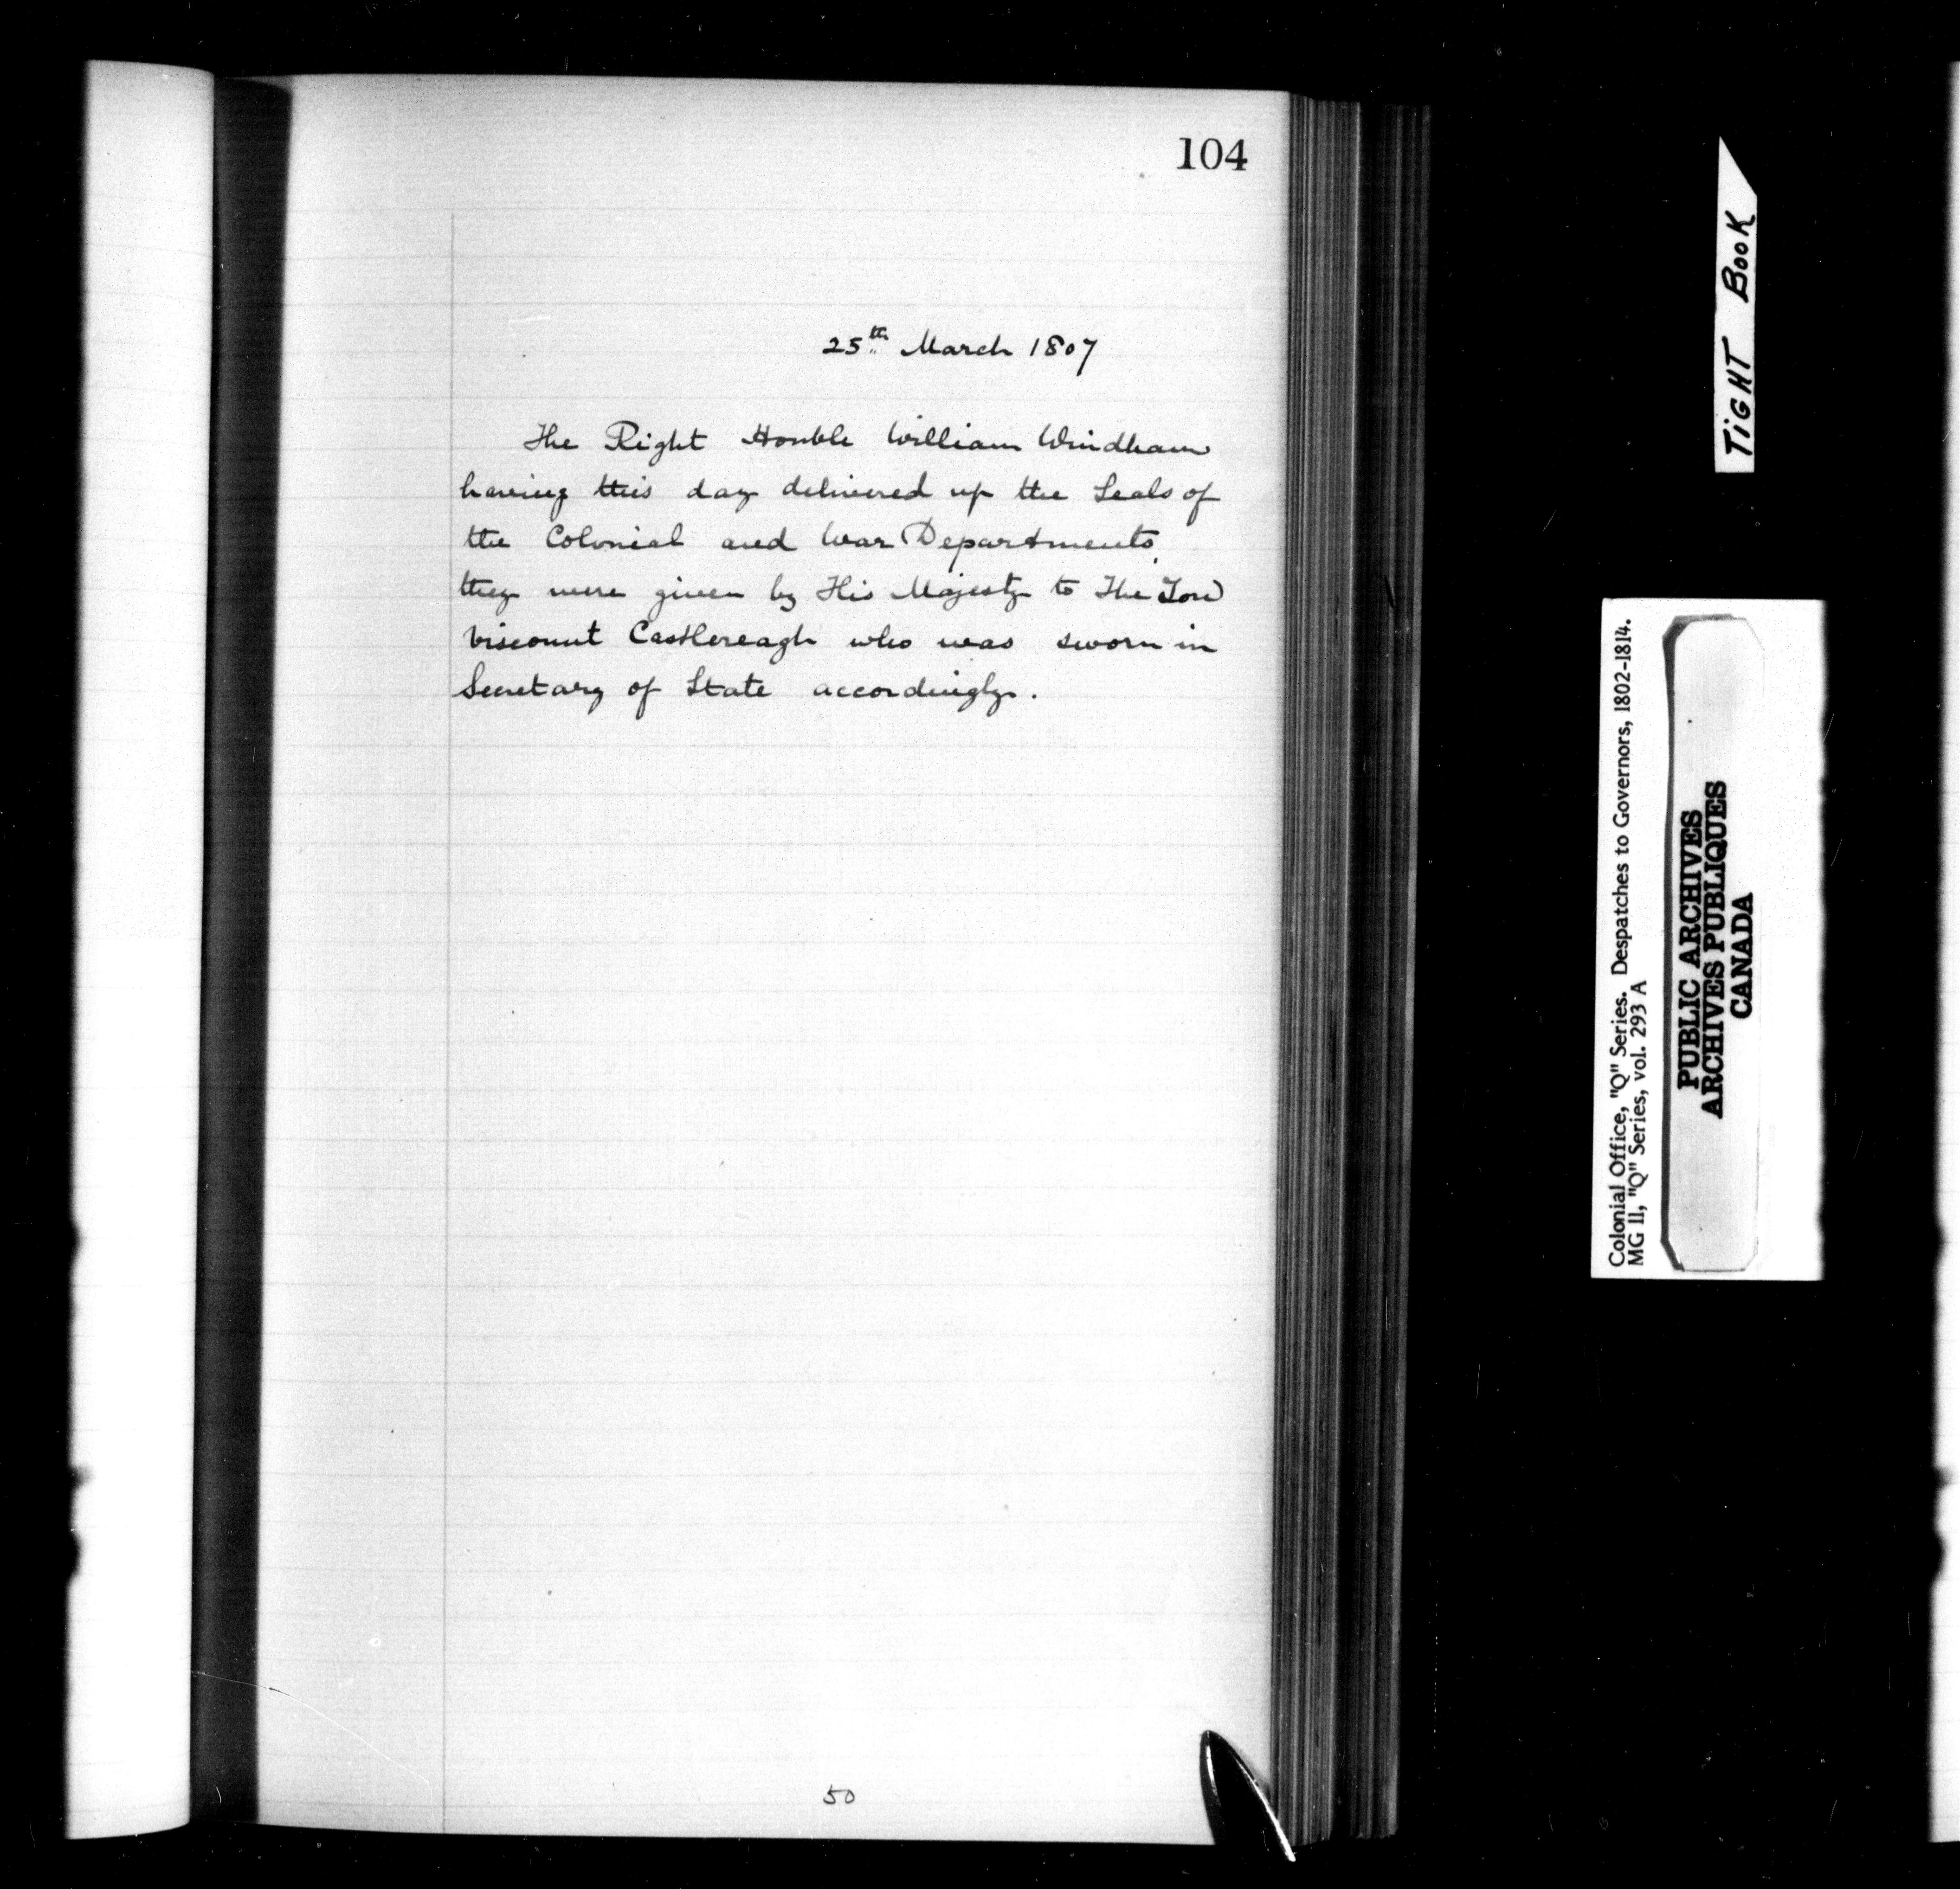 104
25th March 1807
The Right Honble William Windham
having this day delivered up the Seals of
the Colonial and War Departments,
they were given by His Majesty to The Lord
Viscount Castlereagh who was sworn in
Secretary of State accordingly.
50
TiGHT BooK
Colonial Office, "Q" Series. Despatches to Governors, 1802-1814.
MG 11, "Q" Series, vol. 293 A
PUBLIC ARCHIVES
ARCHIVES PUBLIQUES
CANADA